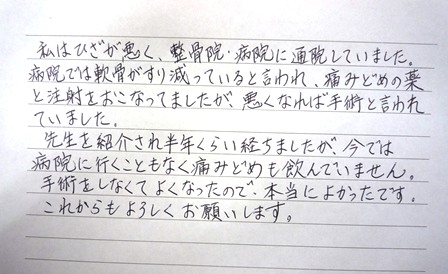 私はひざが悪く、整骨院・病院に通院していました。
病院では軟骨がすり減っていると言われ、痛みどめの薬
と注射をおこなってましたが、悪くなれば手術と言われ
ていました。
先生を紹介され半年くらい経ちましたが、今では
病院に行くこともなく痛みどめも飲んでいません。
手術をしなくてよくなったので、本当によかったです。
これからもよろしくお願いします。